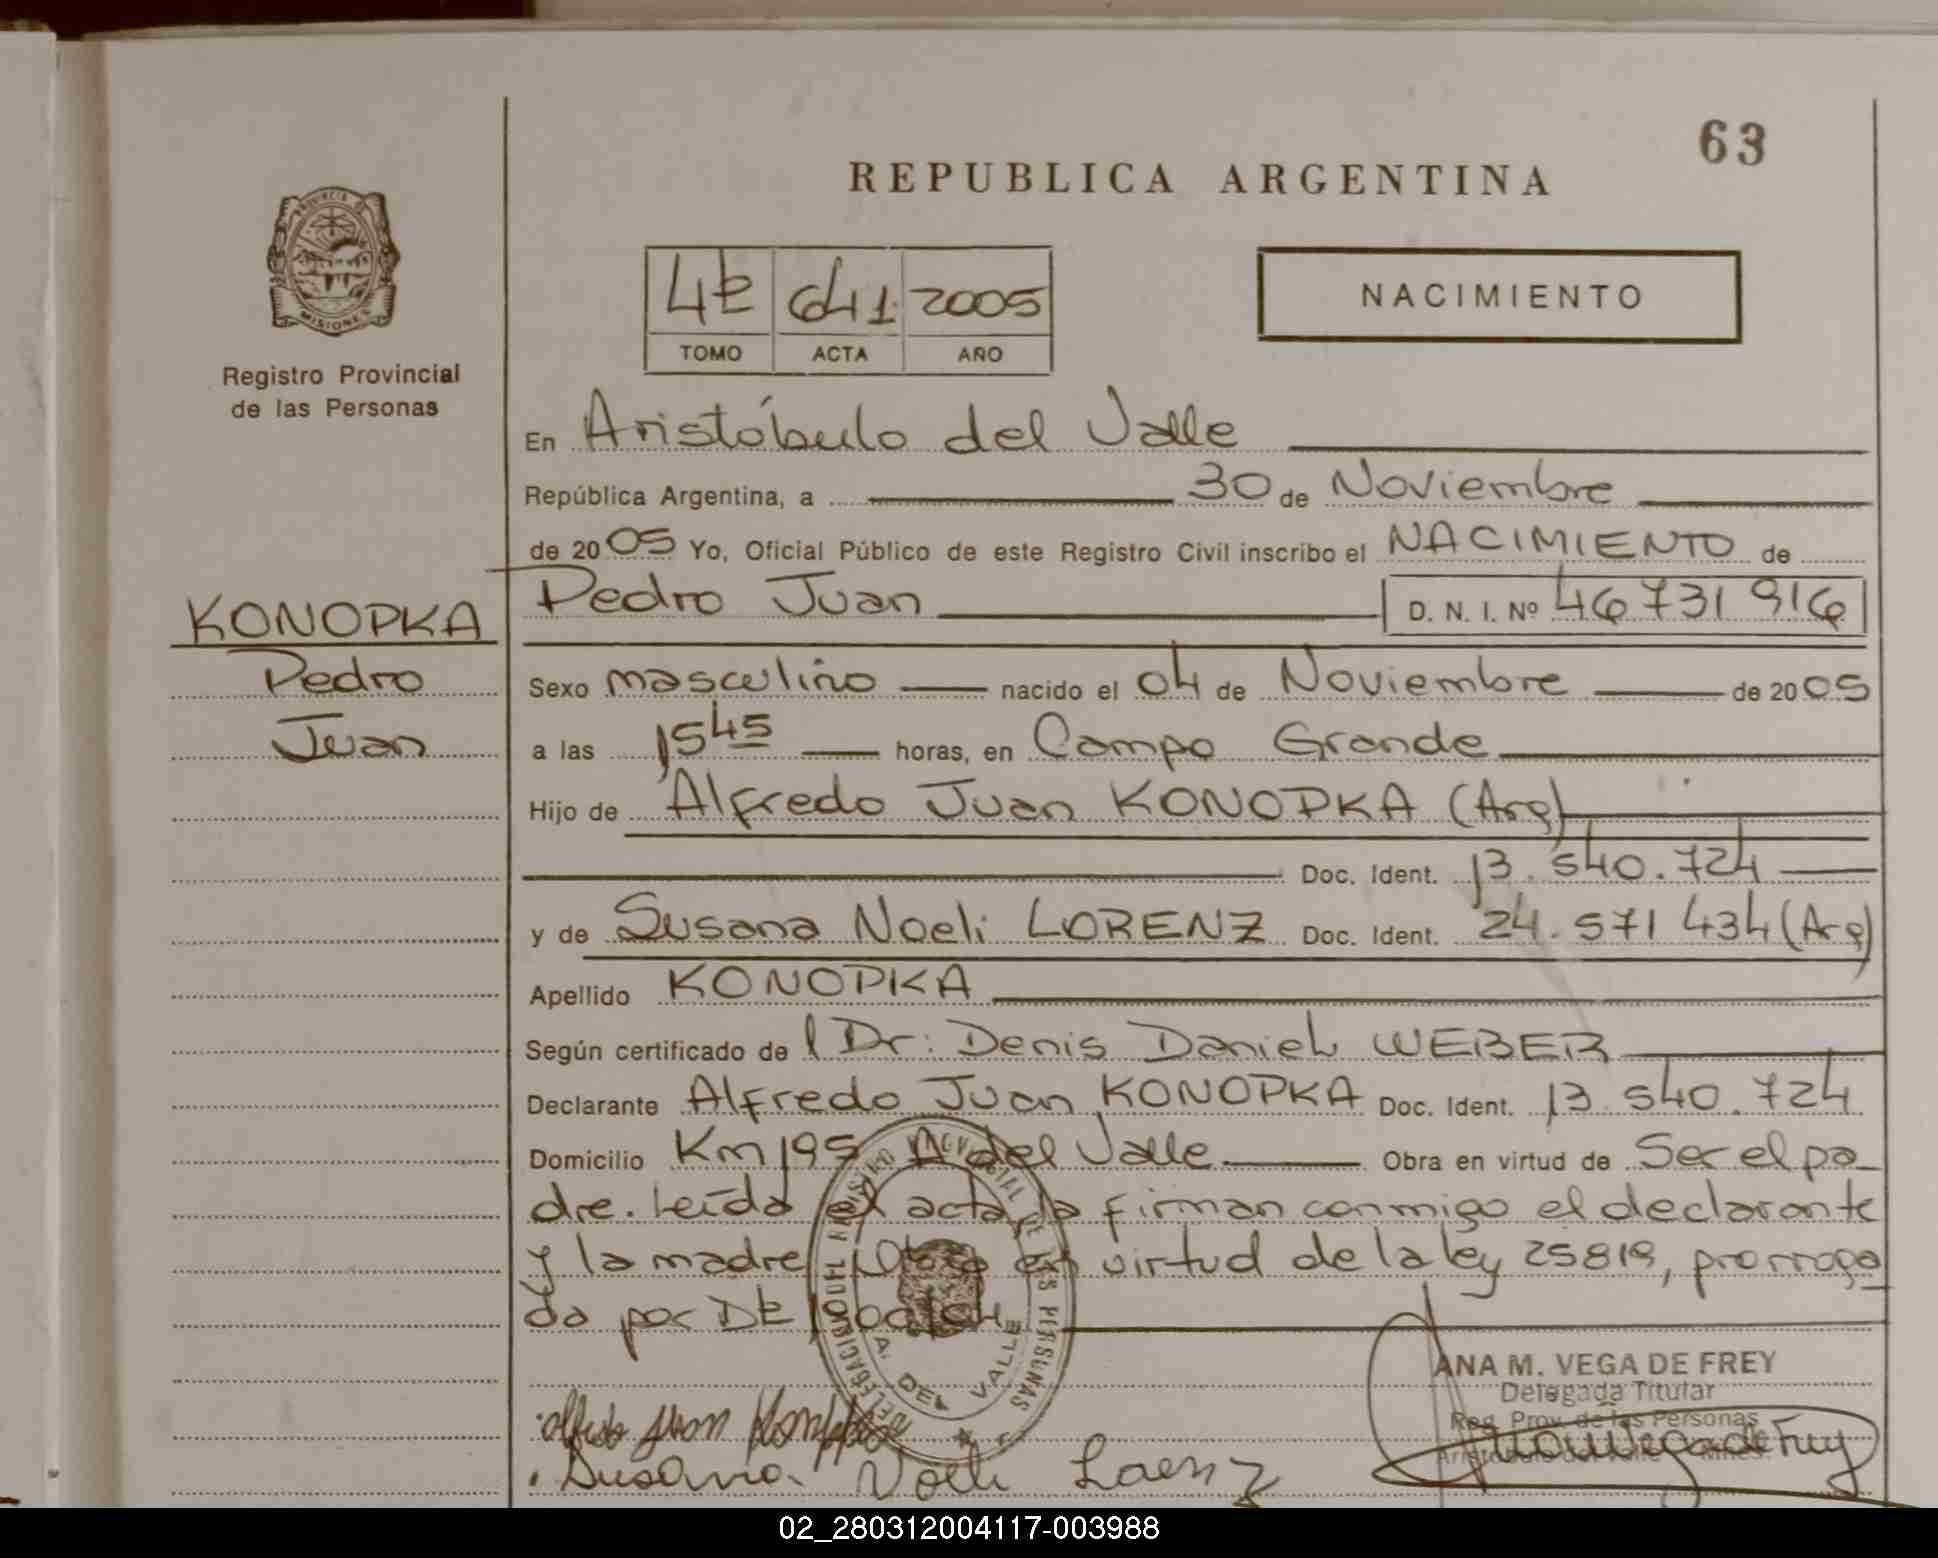 63
REPUBLICA ARGENTINA
PROVINCIA DE
MISIONES
Registro Provincial
de las Personas
4t 641 2005
TOMO ACTA AÑO
NACIMIENTO
En Aristóbulo del Valle
República Argentina, a 30 de Noviembre
de 2005 Yo, Oficial Público de este Registro Civil inscribo el NACIMIENTO de
KONOPKA
Pedro
Juan
Pedro Juan D. N. I. Nº 46731916
Sexo masculino nacido el 04 de Noviembre de 2005
a las 15 45 horas, en Campo Grande
Hijo de Alfredo Juan KONOPKA (Arg)
Doc. Ident. 13.540.724
y de Susana Noeli LORENZ Doc. Ident. 24.571 434 (Arg)
Apellido KONOPKA
Según certificado de l Dr: Denis Daniel WEBER
Declarante Alfredo Juan KONOPKA Doc. Ident. 13.540.724
Domicilio Km 195 A del Valle Obra en virtud de Ser el pa
dre. Leída el acta la firman conmigo el declarante
y la madre virtud de la ley 25819, prorroga
da por Dt
A. DEL VALLE
ANA M. VEGA DE FREY
Delegada Titular
Reg. Prov. de las Personas
Aristóbulo del Valle Mnes.
Alfredo Juan Konopka
Susana Noeli Lorenz
02_280312004117-003988